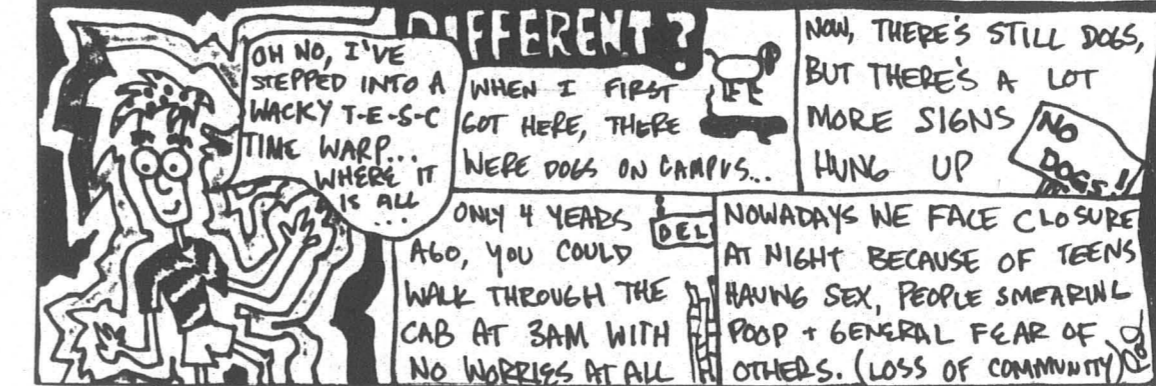 OH NO, I'VE
STEPPED INTO A
WACKY T-E-S-C
TIME WARP...
WHERE IT
IS ALL
...
DIFFERENT?
WHEN I FIRST
GOT HERE, THERE
WERE DOGS ON CAMPUS...
NOW, THERE'S STILL DOGS,
BUT THERE'S A LOT
MORE SIGNS
HUNG UP
NO
DOGS!
ONLY 4 YEARS
AGO, YOU COULD
WALK THROUGH THE
CAB AT 3AM WITH
NO WORRIES AT ALL
DEL
NOWADAYS WE FACE CLOSURE
AT NIGHT BECAUSE OF TEENS
HAVING SEX, PEOPLE SMEARING
POOP + GENERAL FEAR OF
OTHERS. (LOSS OF COMMUNITY)